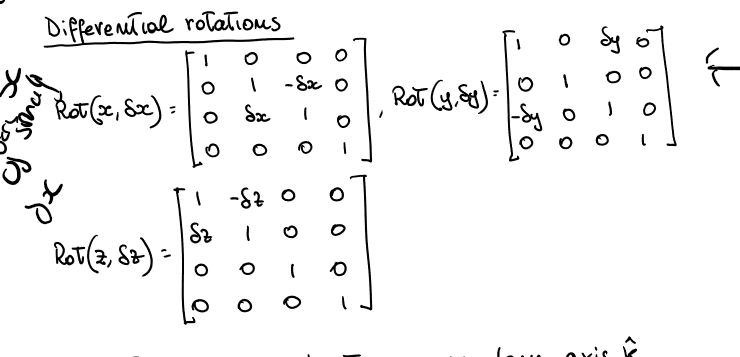 Differential rotations
Rot(x, δx) = [1 0 0 0; 0 1 -δx 0; 0 δx 1 0; 0 0 0 1], Rot(y, δy) = [1 0 δy 0; 0 1 0 0; -δy 0 1 0; 0 0 0 1]
Rot(z, δz) = [1 -δz 0 0; δz 1 0 0; 0 0 1 0; 0 0 0 1]
axis k̂